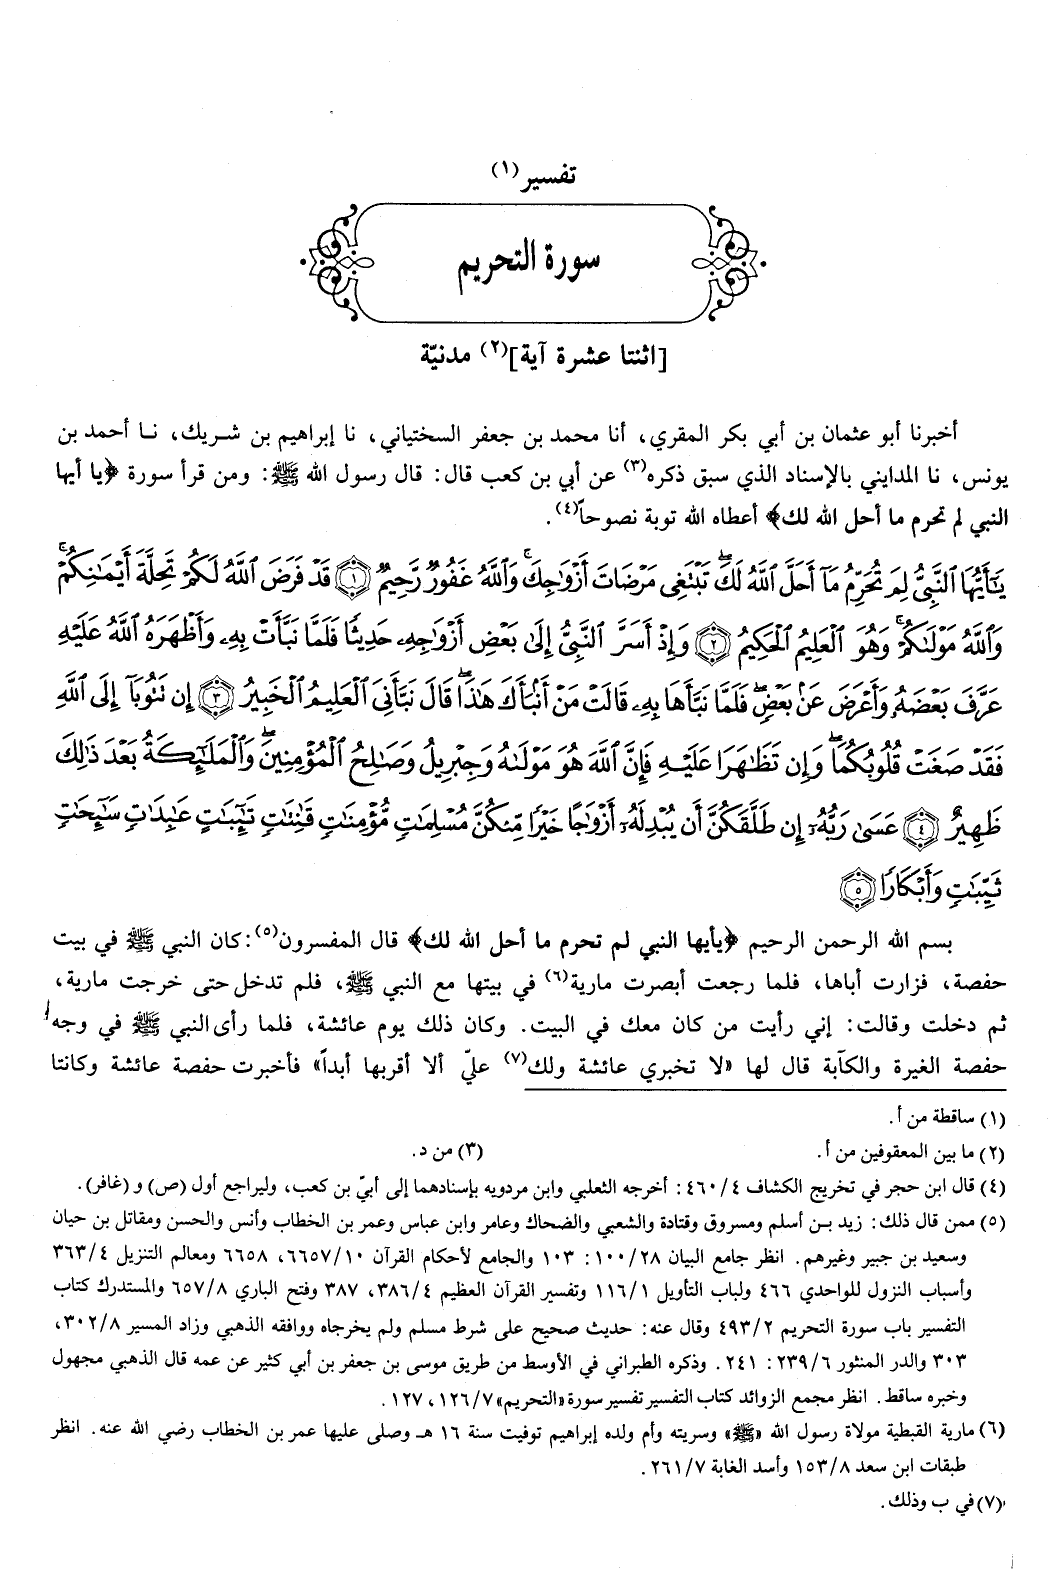 تفسير(١)
سورة التحريم
[اثنتا عشرة آية](٢) مدنيّة
أخبرنا أبو عثمان بن أبي بكر المقري، أنا محمد بن جعفر السختياني، نا إبراهيم بن شريك، نا أحمد بن
يونس، نا المدايني بالإسناد الذي سبق ذكره(٣) عن أبي بن كعب قال: قال رسول الله ﷺ: ومن قرأ سورة ﴿يا أيها
النبي لم تحرم ما أحل الله لك﴾ أعطاه الله توبة نصوحاً(٤).
يَٰٓأَيُّهَا ٱلنَّبِيُّ لِمَ تُحَرِّمُ مَآ أَحَلَّ ٱللَّهُ لَكَۖ تَبْتَغِى مَرْضَاتَ أَزْوَٰجِكَۚ وَٱللَّهُ غَفُورٌ رَّحِيمٌ ١ قَدْ فَرَضَ ٱللَّهُ لَكُمْ تَحِلَّةَ أَيْمَٰنِكُمْۚ
وَٱللَّهُ مَوْلَىٰكُمْۖ وَهُوَ ٱلْعَلِيمُ ٱلْحَكِيمُ ٢ وَإِذْ أَسَرَّ ٱلنَّبِيُّ إِلَىٰ بَعْضِ أَزْوَٰجِهِۦ حَدِيثًا فَلَمَّا نَبَّأَتْ بِهِۦ وَأَظْهَرَهُ ٱللَّهُ عَلَيْهِ
عَرَّفَ بَعْضَهُۥ وَأَعْرَضَ عَنۢ بَعْضٍۖ فَلَمَّا نَبَّأَهَا بِهِۦ قَالَتْ مَنْ أَنۢبَأَكَ هَٰذَاۖ قَالَ نَبَّأَنِىَ ٱلْعَلِيمُ ٱلْخَبِيرُ ٣ إِن تَتُوبَآ إِلَى ٱللَّهِ
فَقَدْ صَغَتْ قُلُوبُكُمَاۖ وَإِن تَظَٰهَرَا عَلَيْهِ فَإِنَّ ٱللَّهَ هُوَ مَوْلَىٰهُ وَجِبْرِيلُ وَصَٰلِحُ ٱلْمُؤْمِنِينَۖ وَٱلْمَلَٰٓئِكَةُ بَعْدَ ذَٰلِكَ
ظَهِيرٌ ٤ عَسَىٰ رَبُّهُۥٓ إِن طَلَّقَكُنَّ أَن يُبْدِلَهُۥٓ أَزْوَٰجًا خَيْرًا مِّنكُنَّ مُسْلِمَٰتٍ مُّؤْمِنَٰتٍ قَٰنِتَٰتٍ تَٰٓئِبَٰتٍ عَٰبِدَٰتٍ سَٰٓئِحَٰتٍ
ثَيِّبَٰتٍ وَأَبْكَارًا ٥
بسم الله الرحمن الرحيم ﴿يأيها النبي لم تحرم ما أحل الله لك﴾ قال المفسرون(٥): كان النبي ﷺ في بيت
حفصة، فزارت أباها، فلما رجعت أبصرت مارية(٦) في بيتها مع النبي ﷺ، فلم تدخل حتى خرجت مارية،
ثم دخلت وقالت: إني رأيت من كان معك في البيت. وكان ذلك يوم عائشة، فلما رأى النبي ﷺ في وجه
حفصة الغيرة والكآبة قال لها «لا تخبري عائشة ولك(٧) عليّ ألا أقربها أبداً» فأخبرت حفصة عائشة وكانتا
(١) ساقطة من أ.
(٢) ما بين المعقوفين من أ. (٣) من د.
(٤) قال ابن حجر في تخريج الكشاف ٤/٤٦٠: أخرجه الثعلبي وابن مردويه بإسنادهما إلى أبيّ بن كعب، وليراجع أول (ص) و(غافر).
(٥) ممن قال ذلك: زيد بن أسلم ومسروق وقتادة والشعبي والضحاك وعامر وابن عباس وعمر بن الخطاب وأنس والحسن ومقاتل بن حيان
وسعيد بن جبير وغيرهم. انظر جامع البيان ٢٨/١٠٠: ١٠٣ والجامع لأحكام القرآن ١٠/٦٦٥٧، ٦٦٥٨ ومعالم التنزيل ٤/٣٦٣
وأسباب النزول للواحدي ٤٦٦ ولباب التأويل ١/١١٦ وتفسير القرآن العظيم ٤/٣٨٦، ٣٨٧ وفتح الباري ٨/٦٥٧ والمستدرك كتاب
التفسير باب سورة التحريم ٢/٤٩٣ وقال عنه: حديث صحيح على شرط مسلم ولم يخرجاه ووافقه الذهبي وزاد المسير ٨/٣٠٢،
٣٠٣ والدر المنثور ٦/٢٣٩: ٢٤١. وذكره الطبراني في الأوسط من طريق موسى بن جعفر بن أبي كثير عن عمه قال الذهبي مجهول
وخبره ساقط. انظر مجمع الزوائد كتاب التفسير تفسير سورة «التحريم» ٧/١٢٦، ١٢٧.
(٦) مارية القبطية مولاة رسول الله «ﷺ» وسريته وأم ولده إبراهيم توفيت سنة ١٦ هـ وصلى عليها عمر بن الخطاب رضي الله عنه. انظر
طبقات ابن سعد ٨/١٥٣ وأسد الغابة ٧/٢٦١.
(٧) في ب وذلك.